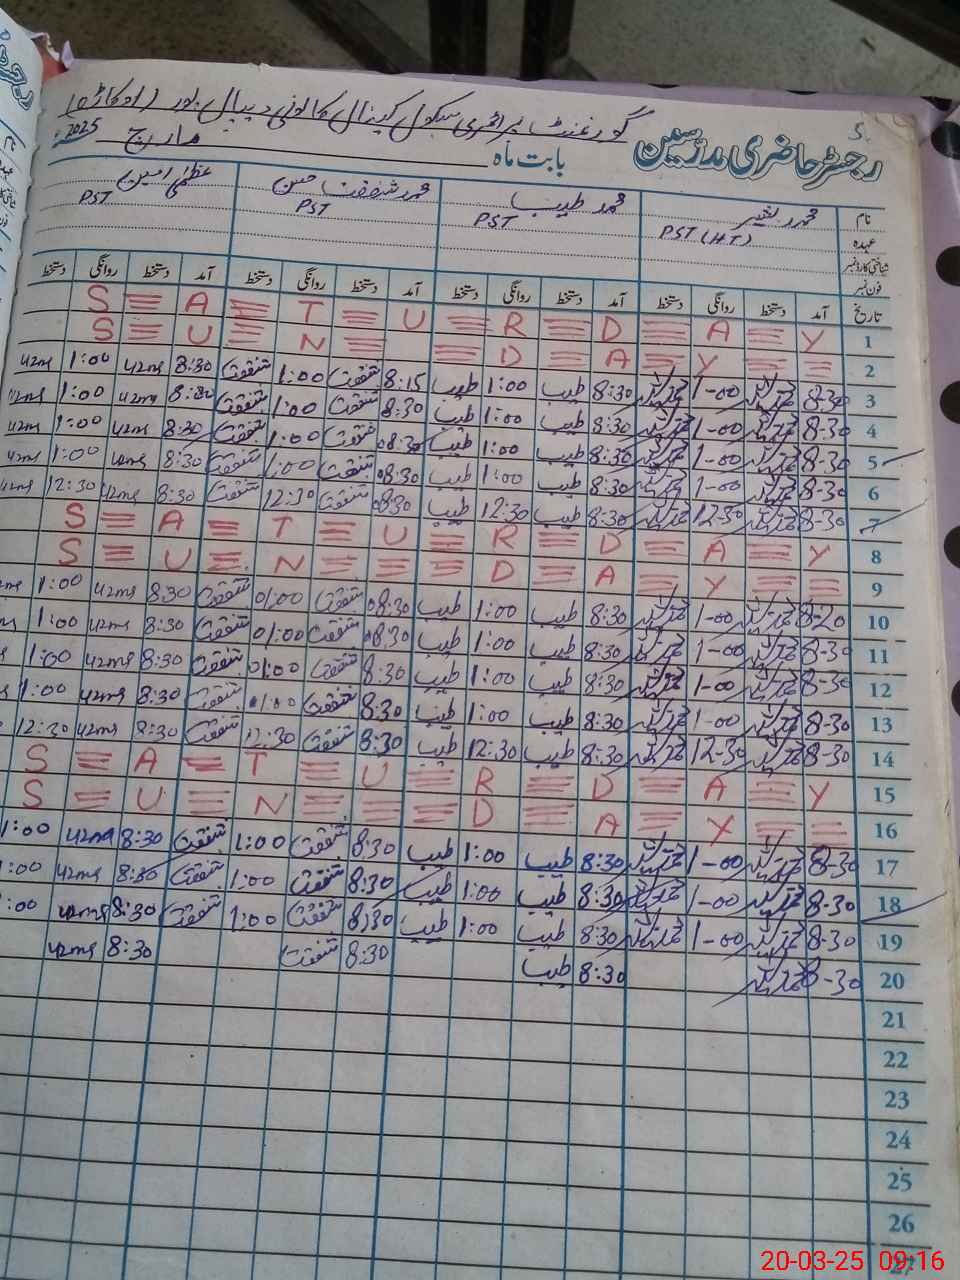 گورنمنٹ پرائمری سکول کینال کالونی دیپال پور (اوکاڑہ)
رجسٹر حاضری مدرسین
بابت ماہ مارچ 2025ء
نام محمد بشیر محمد طیب محمد شفقت حسین عظمیٰ یٰسین
عہدہ PST (HT) PST PST PST
شناختی کارڈ نمبر
فون نمبر
تاریخ آمد دستخط روانگی دستخط آمد دستخط روانگی دستخط آمد دستخط روانگی دستخط آمد دستخط روانگی دستخط
1 S A T U R D A Y
2 S U N D A Y
3 8-30 1-00 8:30 طیب 1:00 طیب 8:15 شفقت 1:00 شفقت 8:30 uzma 1:00 uzma
4 8-30 1-00 8:30 طیب 1:00 طیب 8:30 شفقت 1:00 شفقت 8:30 uzma 1:00 uzma
5 8-30 1-00 8:30 طیب 1:00 طیب 08:30 شفقت 1:00 شفقت 8:30 uzma 1:00 uzma
6 8-30 1-00 8:30 طیب 1:00 طیب 08:30 شفقت 1:00 شفقت 8:30 uzma 1:00 uzma
7 8-30 12-30 8:30 طیب 12:30 طیب 08:30 شفقت 12:30 شفقت 8:30 uzma 12:30 uzma
8 S A T U R D A Y
9 S U N D A Y
10 8-30 1-00 8:30 طیب 1:00 طیب 08:30 شفقت 01:00 شفقت 8:30 uzma 1:00
11 8-30 1-00 8:30 طیب 1:00 طیب 08:30 شفقت 01:00 شفقت 8:30 uzma 1:00
12 8-30 1-00 8:30 طیب 1:00 طیب 8:30 شفقت 01:00 شفقت 8:30 uzma 1:00
13 8-30 1-00 8:30 طیب 1:00 طیب 8:30 شفقت 01:00 شفقت 8:30 uzma 1:00
14 8-30 12-30 8:30 طیب 12:30 طیب 8:30 شفقت 12:30 شفقت 8:30 uzma 12:30
15 S A T U R D A Y
16 S U N D A Y
17 8-30 1-00 8:30 طیب 1:00 طیب 8:30 شفقت 1:00 شفقت 8:30 uzma 1:00
18 8-30 1-00 8:30 طیب 1:00 طیب 8:30 شفقت 1:00 شفقت 8:30 uzma 1:00
19 8-30 1-00 8:30 طیب 1:00 طیب 8:30 شفقت 1:00 شفقت 8:30 uzma 1:00
20 8-30 8:30 طیب 8:30 شفقت 8:30 uzma
21
22
23
24
25
26
27
20-03-25 09:16